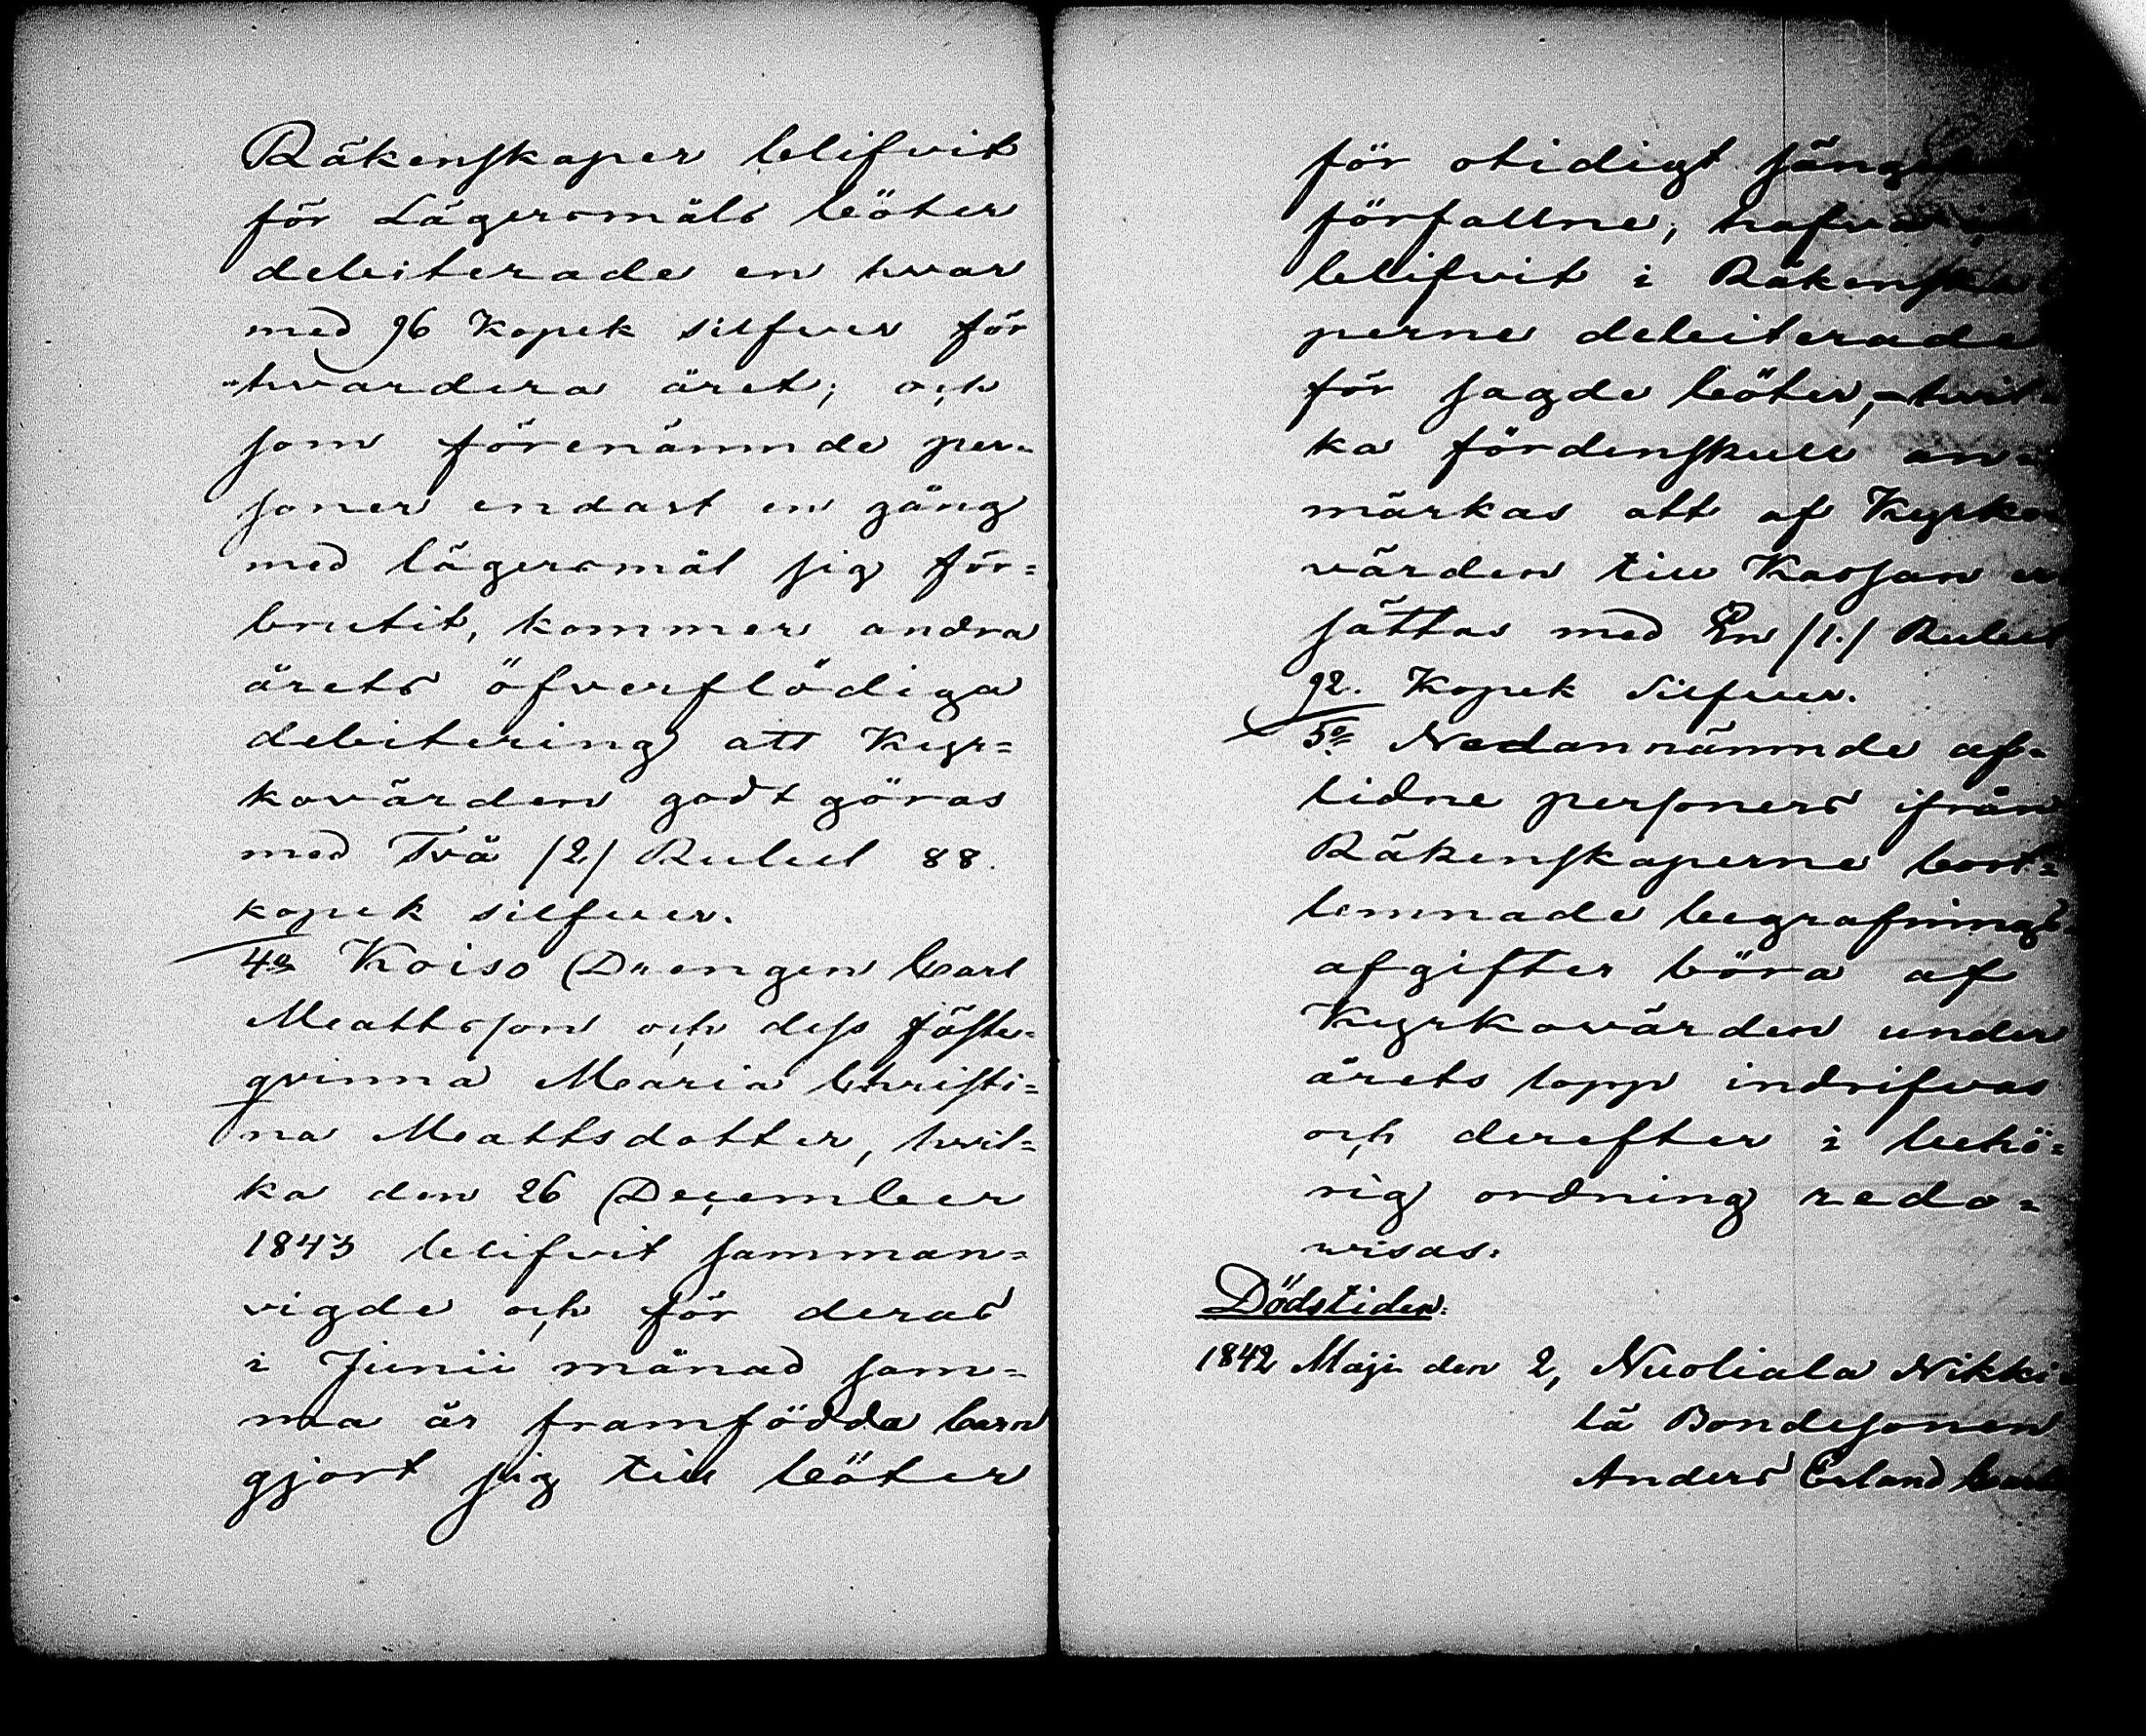 Räkenskaper blifvit
för Lägersmåls böter
debiterade en hvar
med 96 Kopek silfver för
hvardera året; och
som förenämnde per-
soner endast en gång
med lägersmål sig för=
brutit, kommer andra
årets öfverflödiga
debitering att Kyr=
kovärden godtgöras
med Två /2/ Rubel 88.
kopek silfver.
4o Koiso Drengen Carl
Mattsson och dess fäste=
qvinna Maria Christi=
na Mattsdotter, hvil=
ka den 26 December
1843 blifvit samman=
vigde och för deras
i Junii månad sam=
ma år framfödda barn
gjort sig till böter
för otidigt
förfallne, hafva
blifvit i Räkenska
perne debiterade
för sagde böter, hvil=
ka fördenskull an=
märkas att af Kyrko=
värden till Kassan er
sättas med En /1./ Rubel
92. Kopek Silfver.
5o Nedannämnde af=
lidne personers ifrån
Räkenskaperne bort=
lemnade begrafnings
afgifter böra af
Kyrkovärden under
årets lopp indrifvas
och derefter i behö=
rig ordning redo=
visas.
Dödstiden.
1842 Maji den 2, Nuoliala Nikki=
lä Bondesonen
Anders Erland